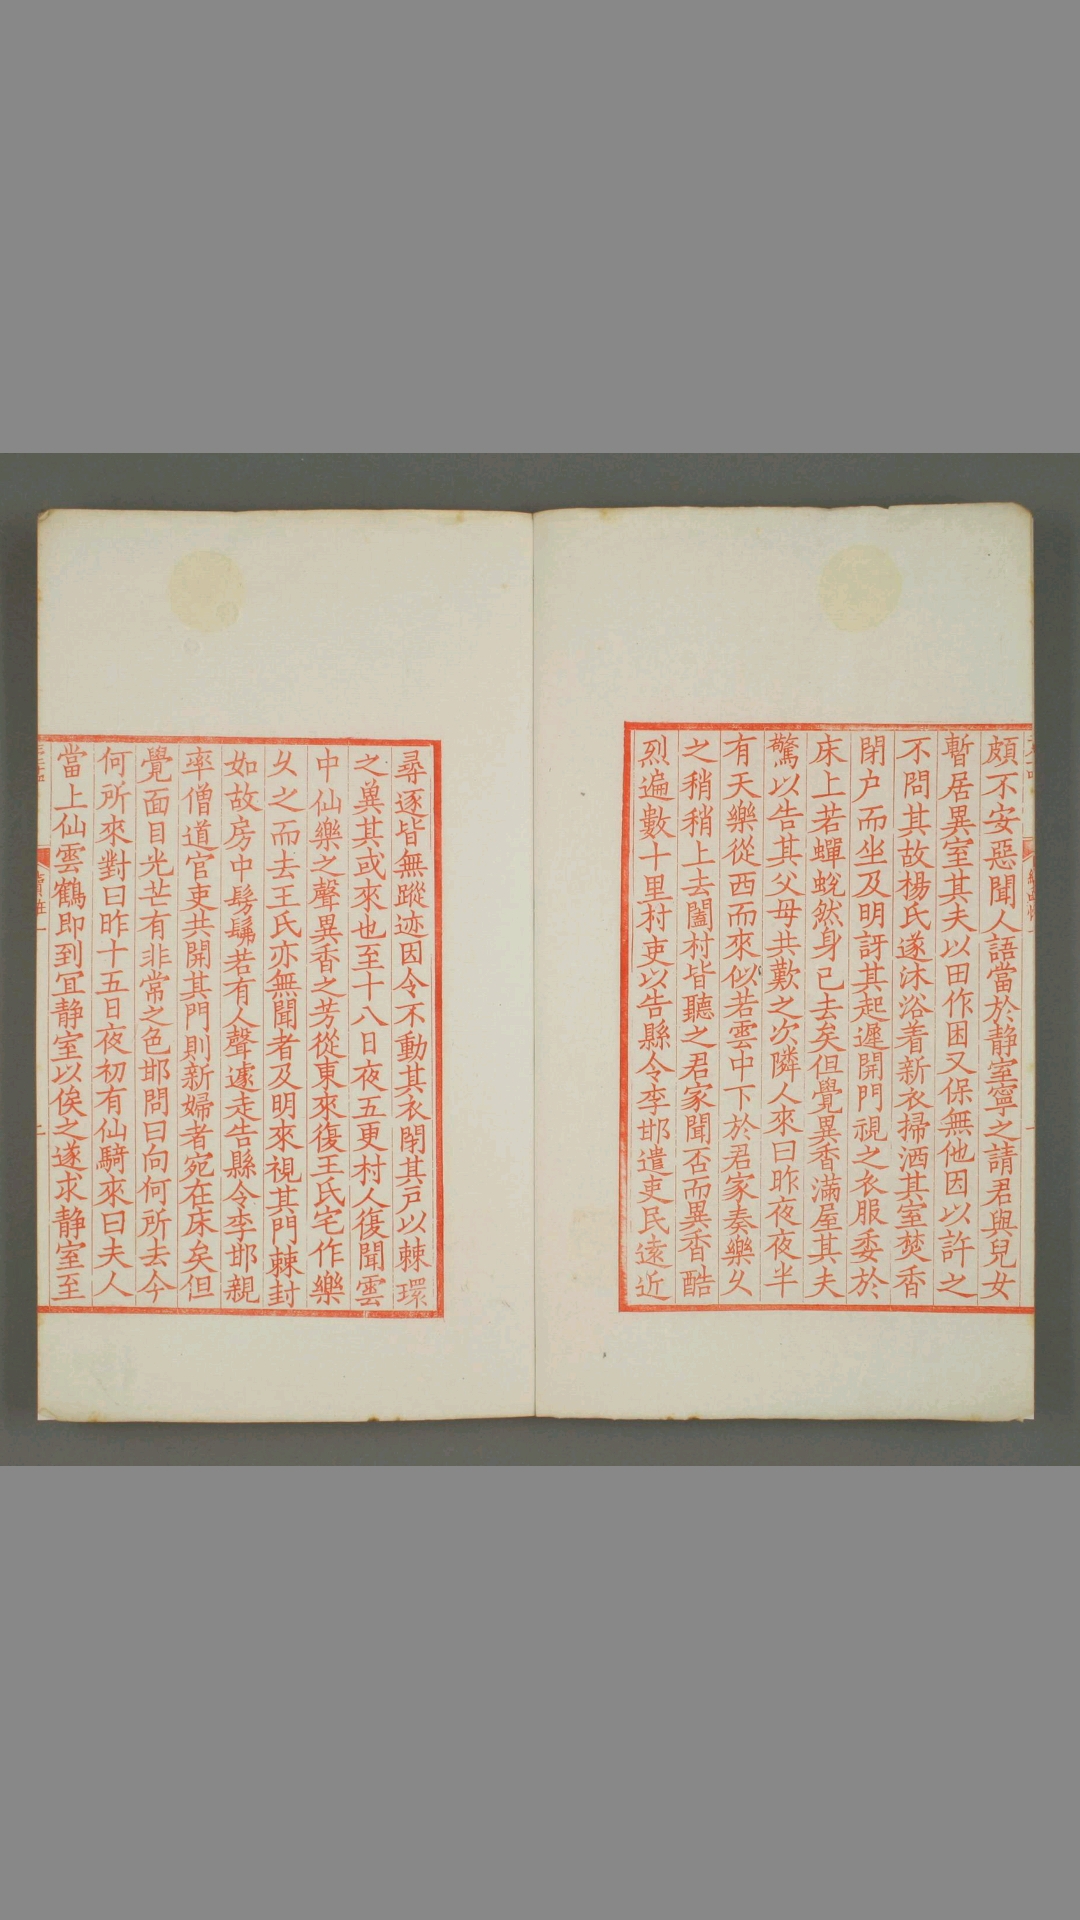 頗不安惡聞人語當於静室寧之請君與兒女
暫居異室其夫以田作困又保無他因以許之
不問其故楊氏遂沐浴着新衣掃洒其室焚香
閉户而坐及明訝其起遲開門視之衣服委於
床上若蟬蛻然身已去矣但覺異香滿屋其夫
驚以告其父母共歎之次隣人來曰昨夜夜半
有天樂從西而來似若雲中下於君家奏樂乆
之稍稍上去闔村皆聽之君家聞否而異香酷
烈遍數十里村吏以告縣令李邯遣吏民遠近
尋逐皆無蹤迹因令不動其衣閉其戸以棘環
之兾其或來也至十八日夜五更村人復聞雲
中仙樂之聲異香之芳從東來復王氏宅作樂
乆之而去王氏亦無聞者及明來視其門棘封
如故房中髣髴若有人聲遽走告縣令李邯親
率僧道官吏共開其門則新婦者宛在床矣但
覺面目光芒有非常之色邯問曰向何所去今
何所來對曰昨十五日夜初有仙騎來曰夫人
當上仙雲鶴即到冝静室以俟之遂求静室至